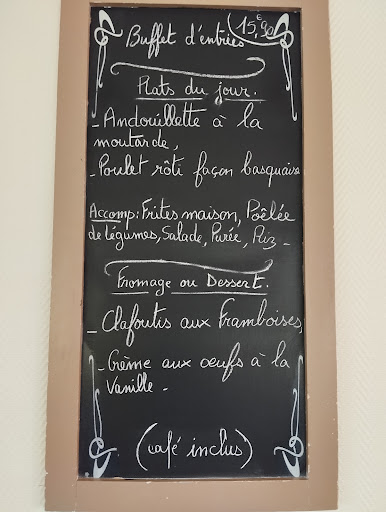 Buffet d'entrées 15,€90
Plats du jour.
- Andouillette à la
moutarde,
- Poulet rôti façon basquaise
Accomp: Frites maison, Poêlée
de légumes, Salade, Purée, Riz -
Fromage ou Dessert.
- Clafoutis aux Framboises,
- Crème aux oeufs à la
Vanille -
(café inclus)